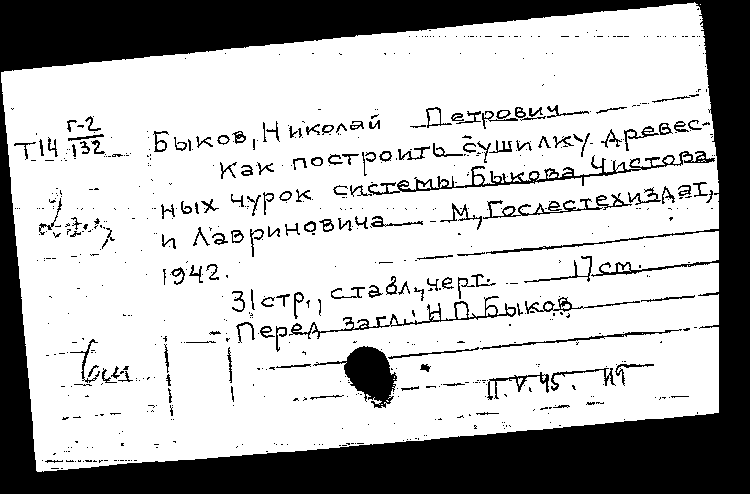 Т14 Г-2/132
Быков, Николай Петрович
Как построить сушилку древес-
ных чурок системы Быкова, Чистова
и Лавриновича М., Гослестехиздат,
1942.
31 стр., с табл., черт. 17 см.
Перед загл.: Н.П. Быков
6 экз
11.V.45.